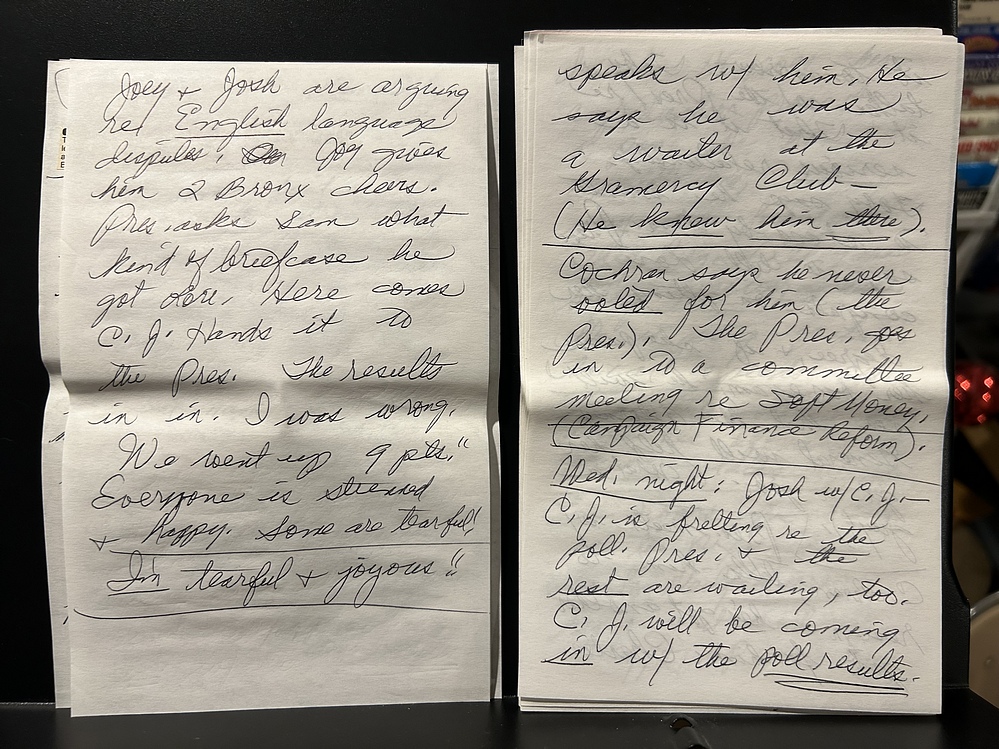 Joey + Josh are arguing
re English language
disputes. Joey gives
him 2 Bronx cheers.
Pres. asks Sam what
kind of briefcase he
got Lore. Here comes
C. J. Hands it to
the Pres. The results
in in. I was wrong.
We went up 9 pts."
Everyone is stunned
+ happy. Some are tearful!
I'm tearful + joyous"
speaks w/ him. He
says he was
a waiter at the
Gramercy Club—
(He knew him there).
Cochran says he never
voted for him (the
Pres.). The Pres. goes
in to a committee
meeting re Soft Money.
(Campaign Finance Reform).
Wed. night: Josh w/ C. J.—
C. J. is fretting re the
poll. Pres. + the
rest are waiting, too.
C. J. will be coming
in w/ the poll results.